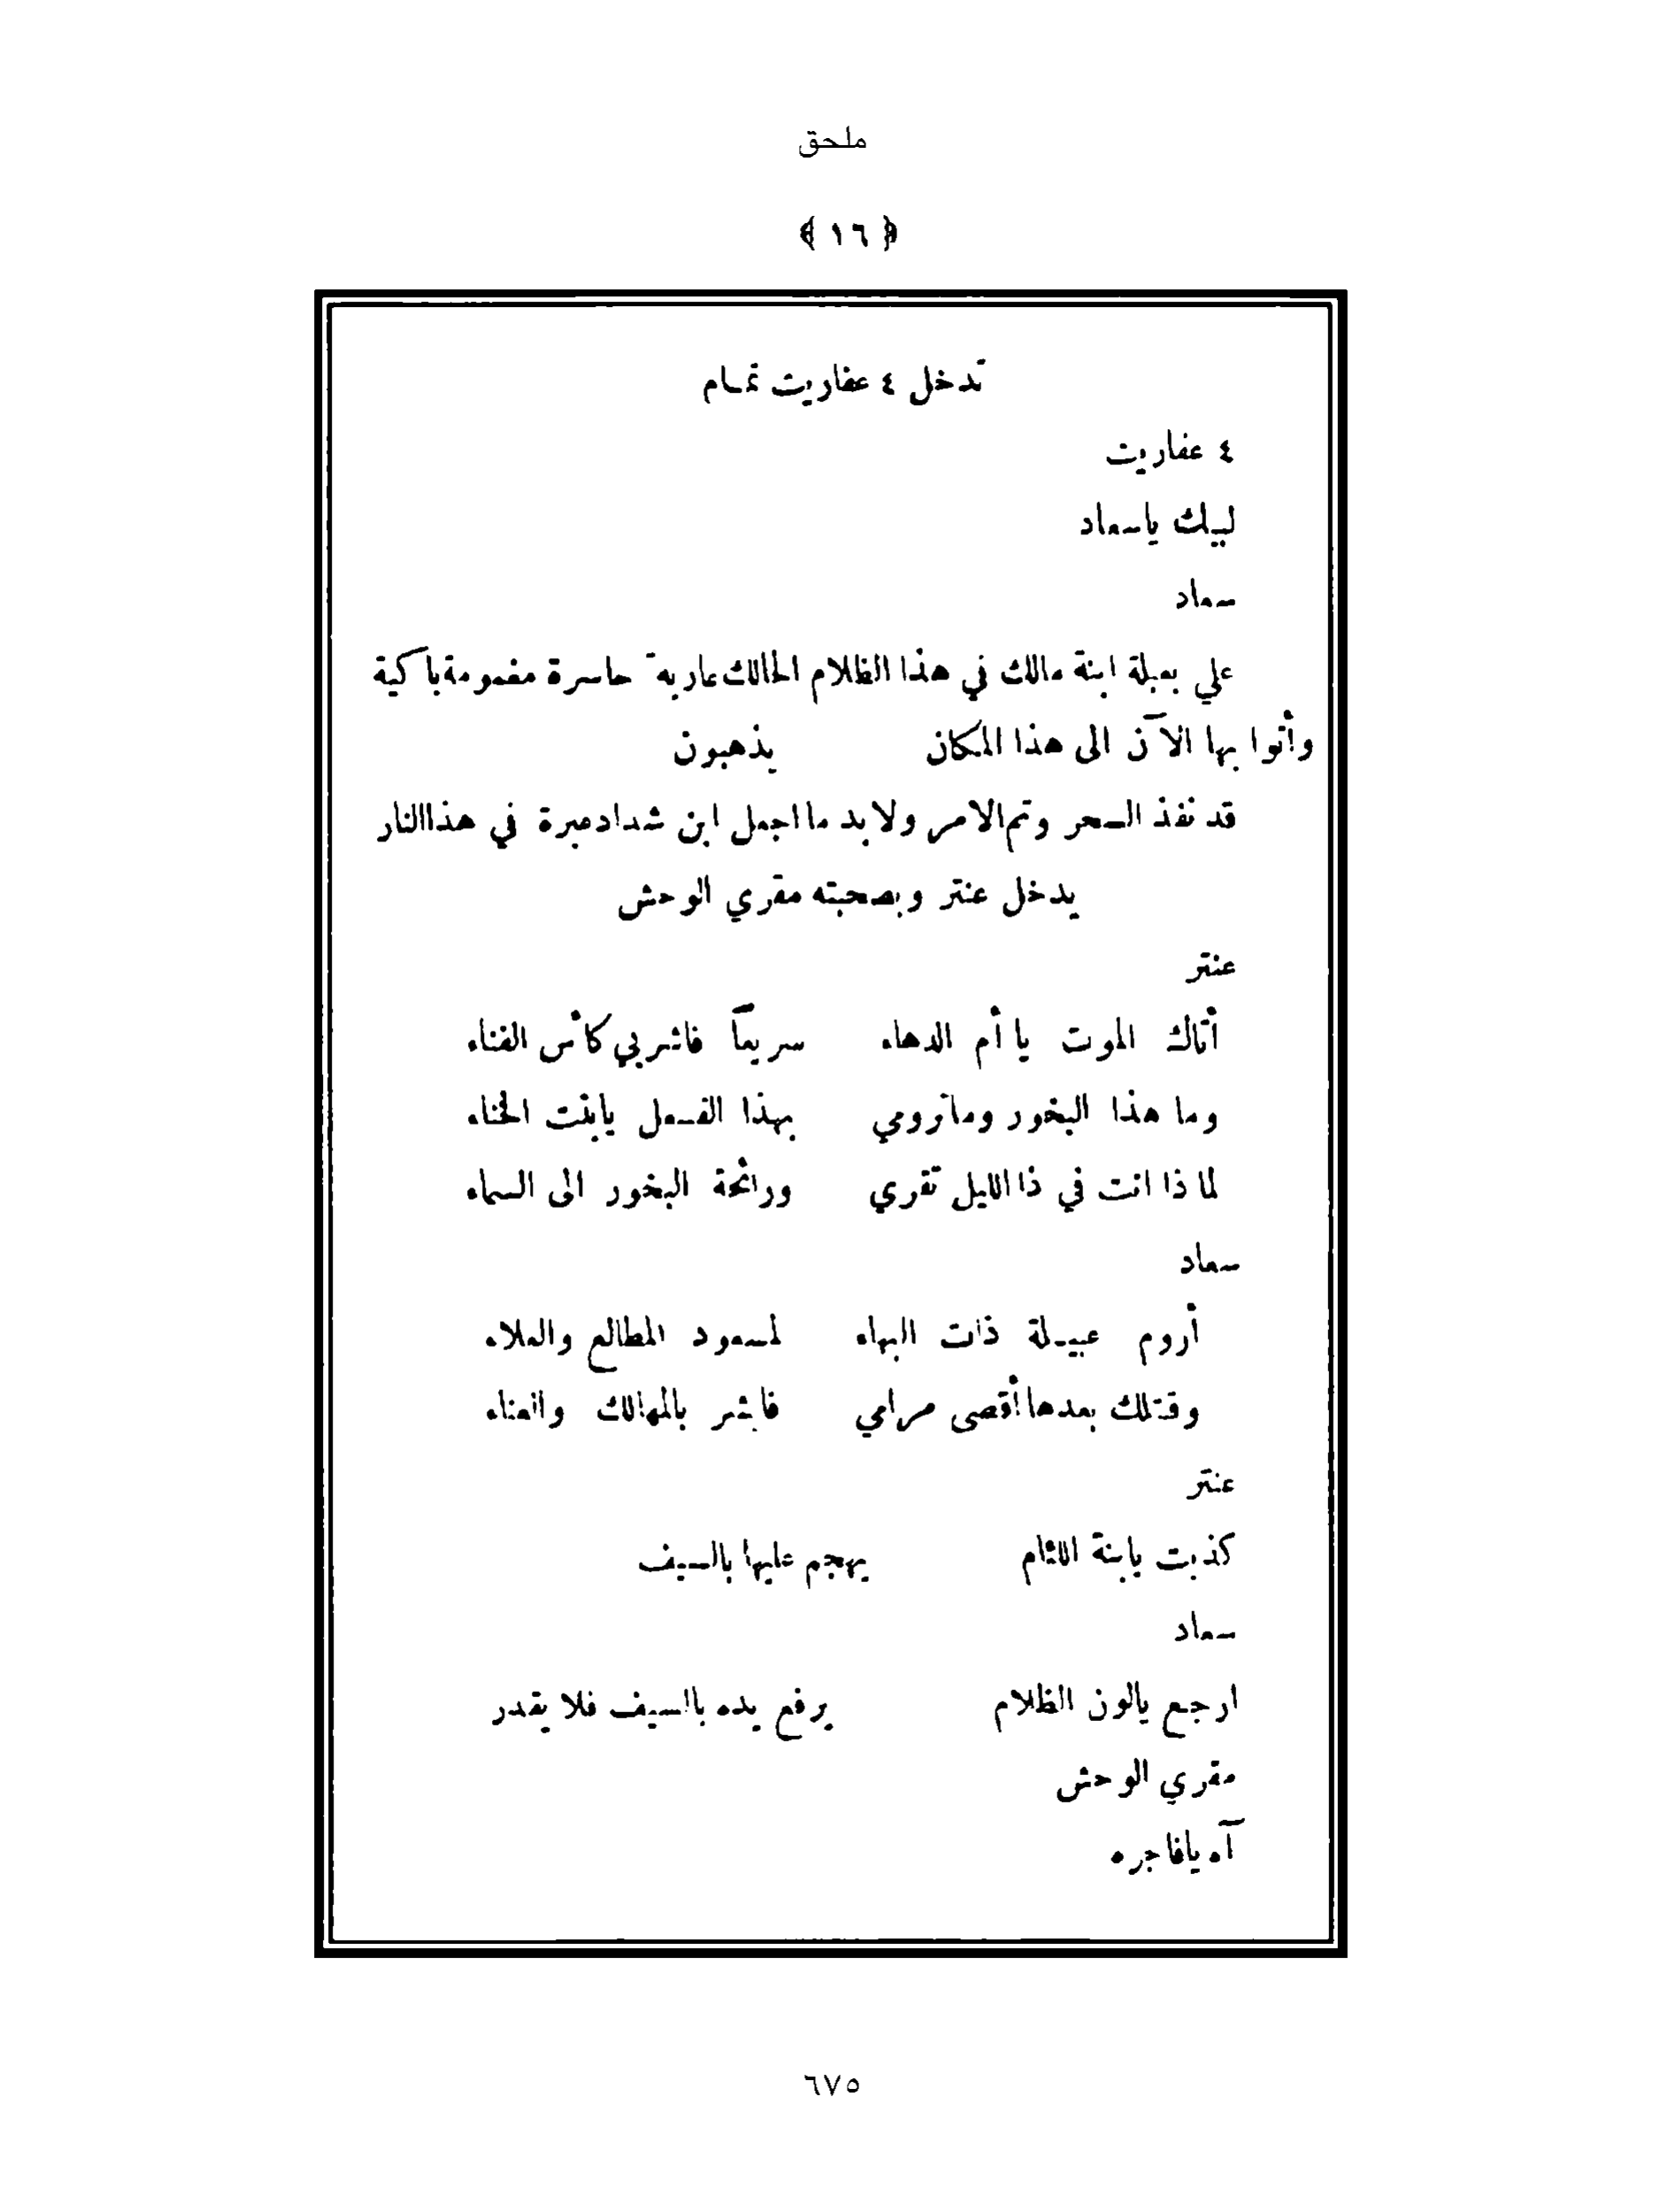 ملحق
﴿ ١٦ ﴾
تدخل ٤ عفاريت تمام
٤ عفاريت
لبيك ياسعاد
سعاد
علي بعبلة ابنة مالك في هذا الظلام الحالك عاريه حاسرة مغمومة باكية
وأتوا بها الآن الى هذا المكان يذهبون
قد نفذ السحر وتم الامر ولا بد ما اجعل ابن شداد عبرة في هذا النار
يدخل عنتر وبصحبته مقري الوحش
عنتر
أتاك الموت يا أم الدهاء سريعاً فاشربي كأس الفناء
وما هذا البخور وما ترومي بهذا الفعل يابنت الخناء
لما ذا انت في ذا الليل تقري ورائحة البخور الى السماء
سعاد
أروم عبيلة ذات البهاء لمسعود المطالع والعلاء
وقتلك بعدها أقصى مرامي فابشر بالمهالك والعناء
عنتر
كذبت يابنة اللئام يهجم عليها بالسيف
سعاد
ارجع يالون الظلام يرفع يده بالسيف فلا يقدر
مقري الوحش
آه يافاجره
٦٧٥